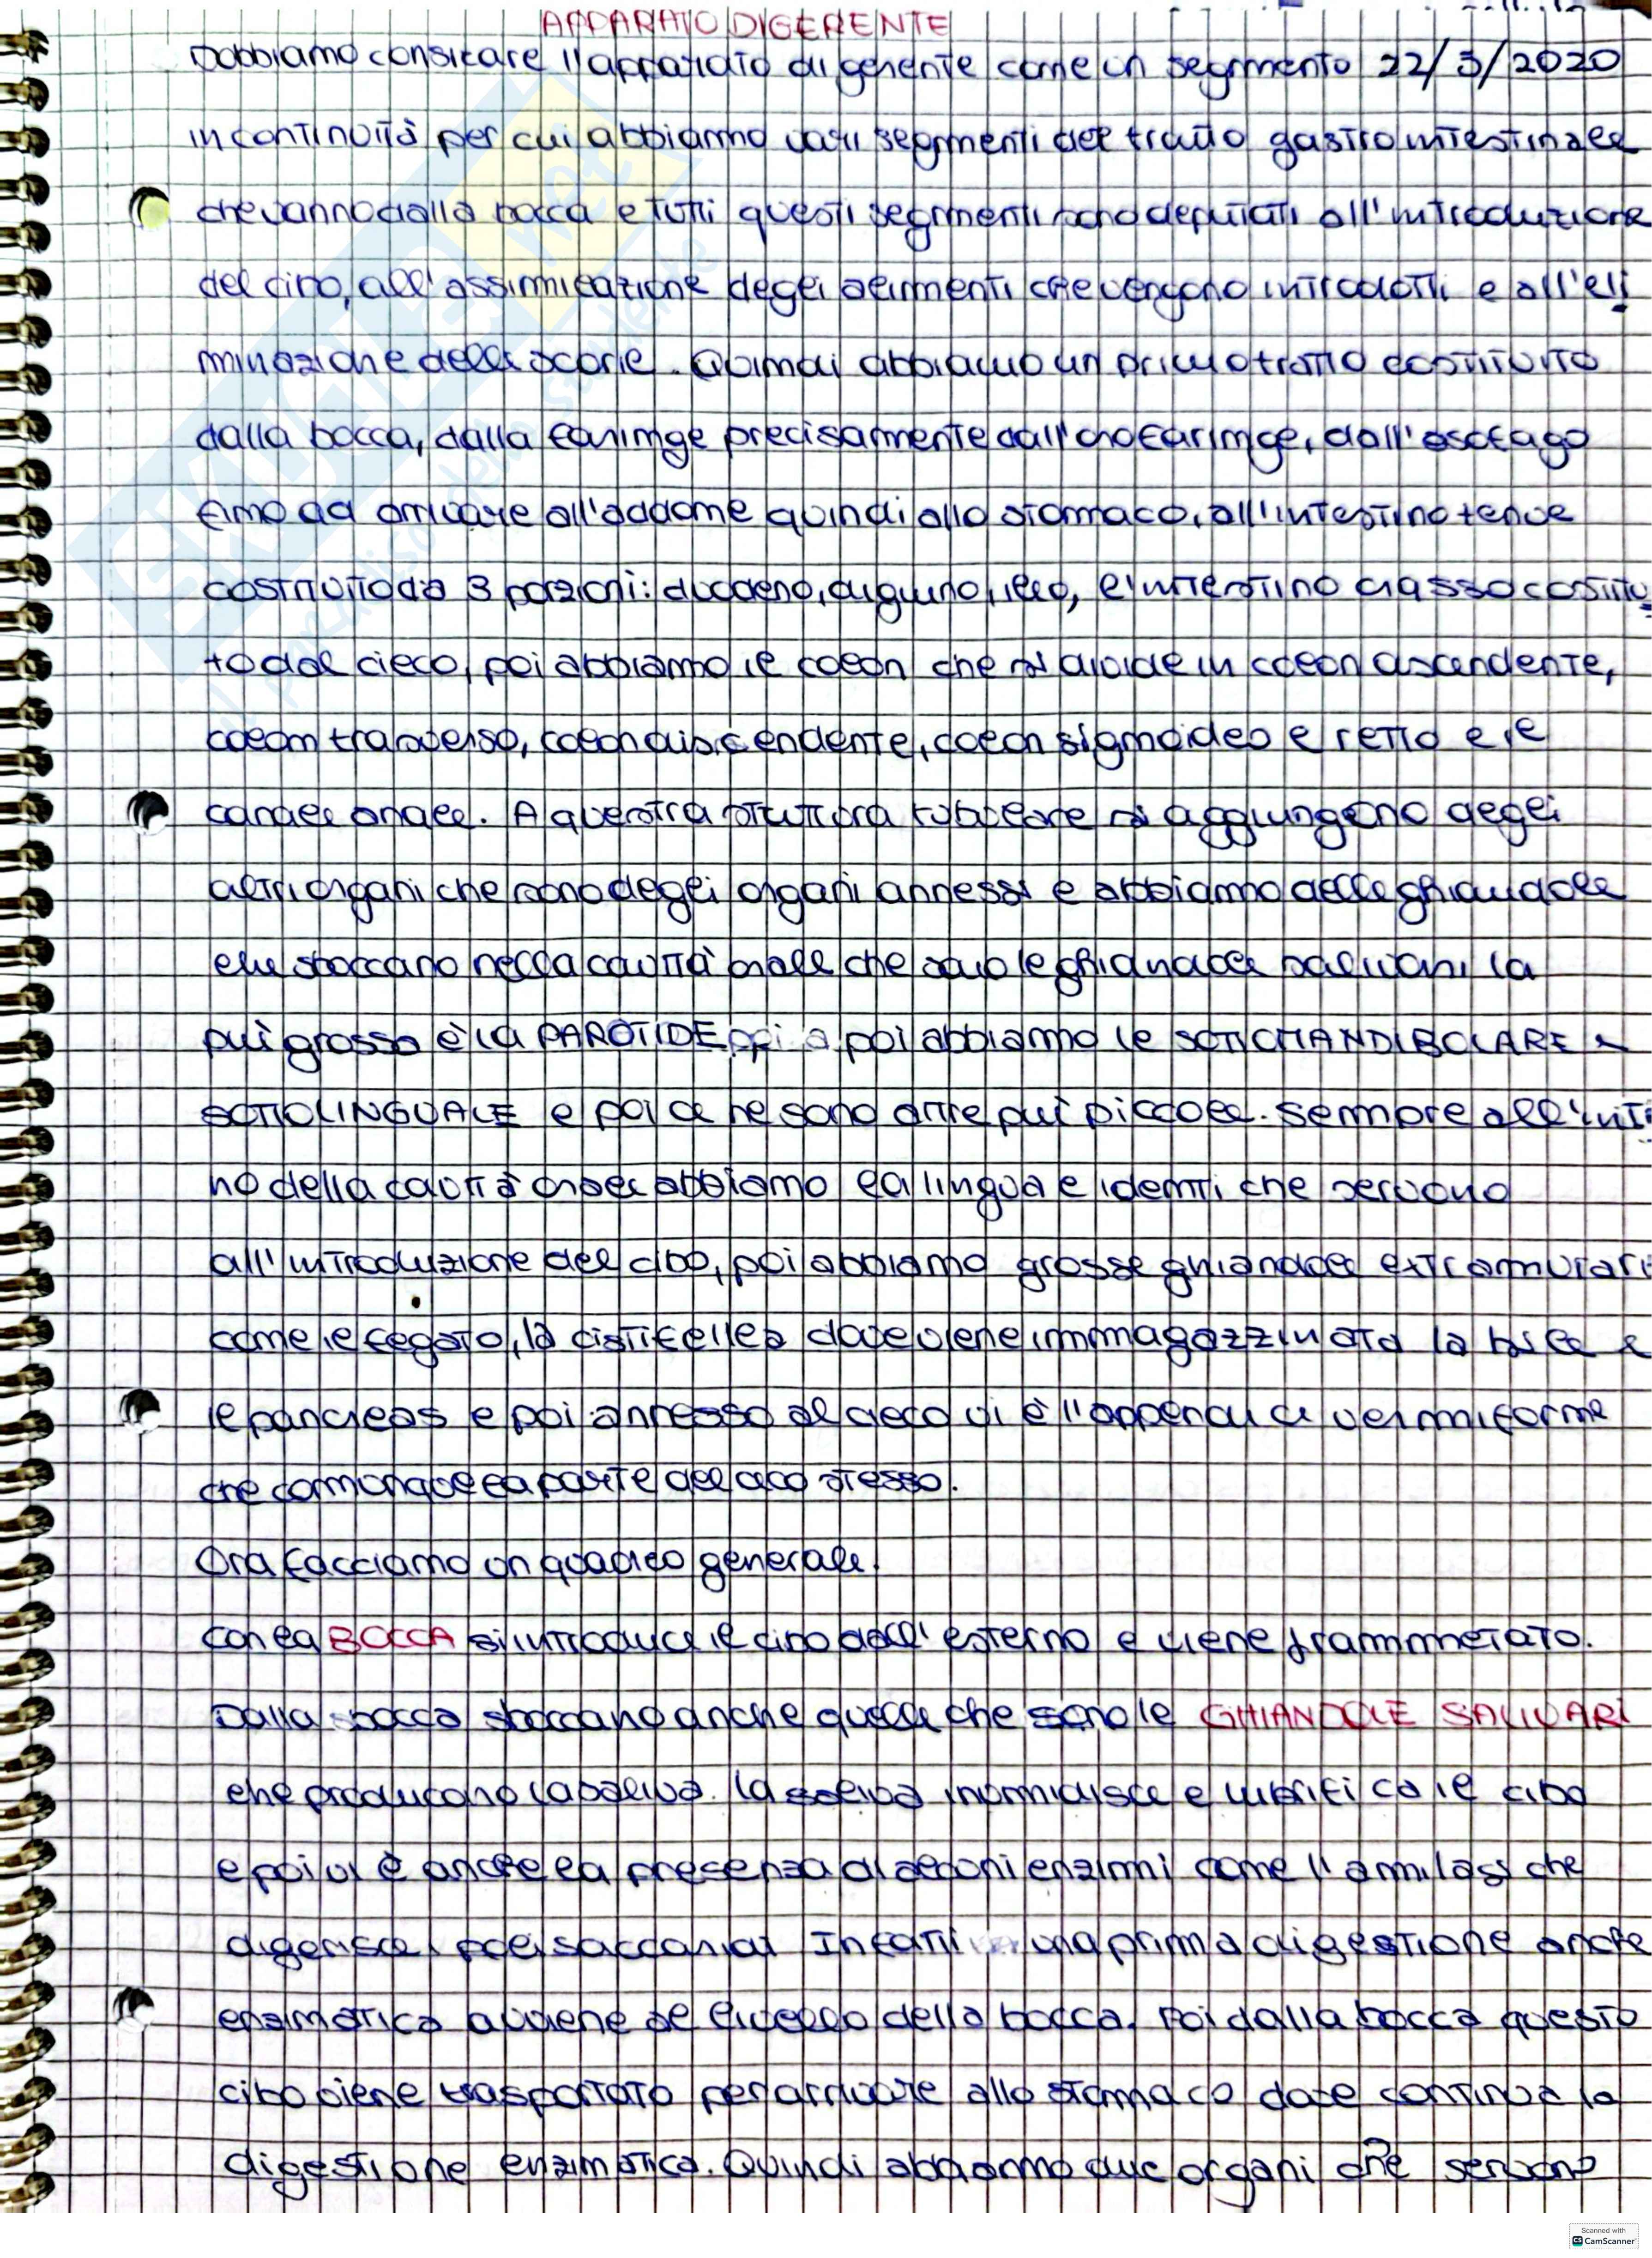 APPARATO DIGERENTE
Dobbiamo consicare l'apparato digerente come un segmento 22/3/2020
in continuità per cui abbiamo vari segmenti del tratto gastro intestinale
che vanno dalla bocca e tutti questi segmenti sono deputati all'introduzione
del cibo, all'assimilazione degli alimenti che vengono introdotti e all'eli
minazione delle scorie. Quindi abbiamo un primo tratto costituito
dalla bocca, dalla faringe precisamente dall'orofaringe, dall'esofago
fino ad arrivare all'addome quindi allo stomaco, all'intestino tenue
costituito da 3 porzioni: duodeno, digiuno, ileo, l'intestino crasso costitu
to dal cieco, poi abbiamo il colon che si divide in colon ascendente,
colon trasverso, colon discendente, colon sigmoideo e retto e il
canale anale. A questra struttura tubolare si aggiungono degli
altri organi che sono degli organi annessi e abbiamo delle ghiandole
che sboccano nella cavità orale che sono le ghiandole salivari la
puì grossa è la PAROTIDE poi a poi abbiamo le SOTTOMANDIBOLARE e
SOTTOLINGUALE e poi ce ne sono altre puì piccole. Sempre all'inte
no della cavità orale abbiamo la lingua e i denti che servono
all'introduzione del cibo, poi abbiamo grosse ghiandole extramurari
come il fegato, la cistifellea dove viene immagazzinata la bile e
il pancreas e poi annesso al cieco vi è l'appendice vermiforme
che comunque fa parte del cieco stesso.
Ora facciamo un quadro generale.
con la BOCCA si introduce il cibo dall'esterno e viene frammetato.
Dalla bocca sboccano anche quelle che sono le GHIANDOLE SALIVARI
che producono la saliva. la saliva inumidisce e lubrifica il cibo
e poi vi è anche la presenza di alcuni enzimi come l'amilasi che
digerisce i polisaccaridi Infatti una prima digestione anche
enzimatica avviene al livello della bocca. Poi dalla bocca questo
cibo viene trasportato per arrivare allo stomaco dove continua la
digestione enzimatica. Quindi abbiamo due organi che servono
SKUOLA.net
il paradiso dello studente
Scanned with
CS CamScanner